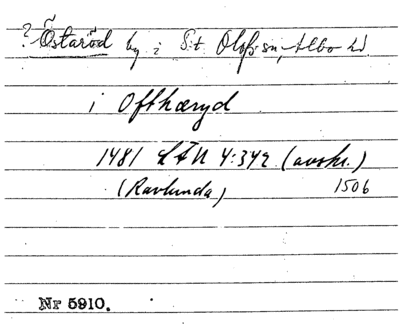 ? Östaröd by i St. Olofs sn, Albo hd
i Ofthæryd
1481 LÅU 4:342 (avskr.)
(Ravlunda) 1506
Nr 5910.